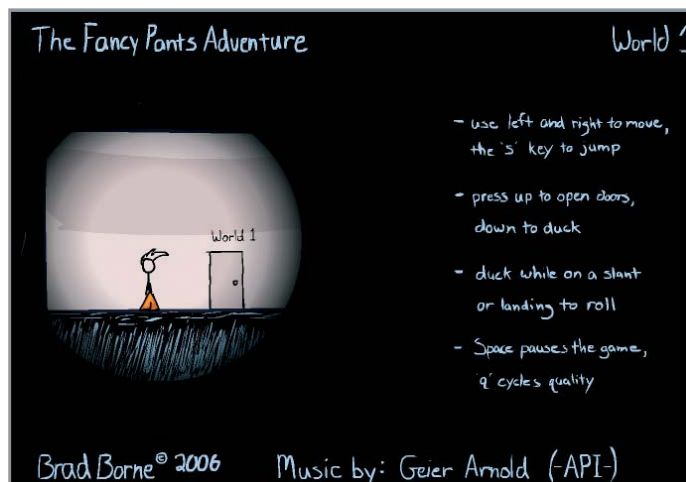 The Fancy Pants Adventure
World 1
- use left and right to move,
the 's' key to jump
- press up to open doors,
down to duck
World 1
- duck while on a slant
or landing to roll
- Space pauses the game,
'q' cycles quality
Brad Borne © 2006
Music by: Geier Arnold (-API-)